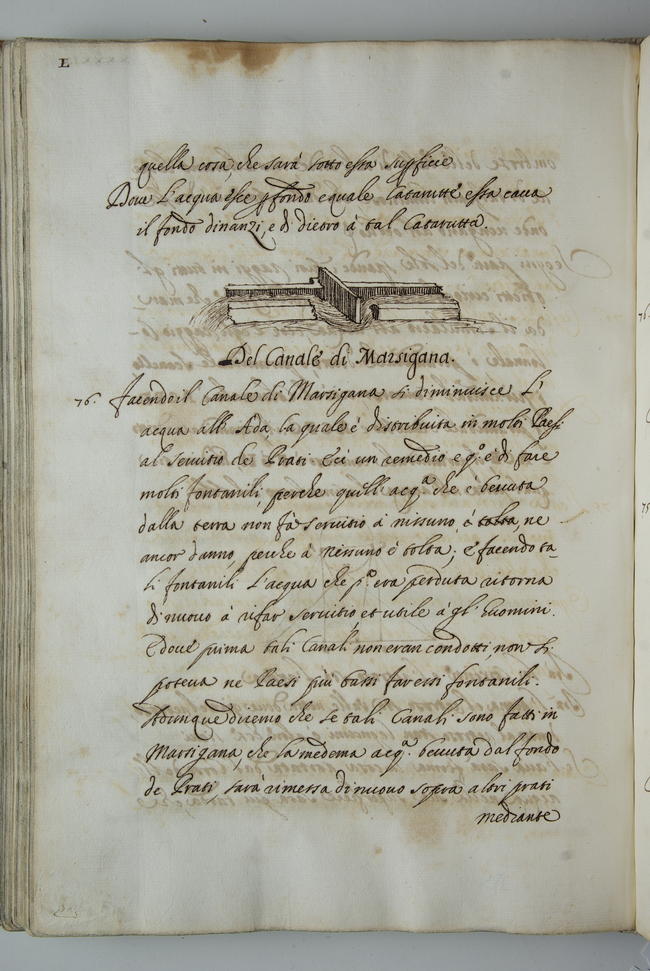 L
quella cosa, che sarà sotto essa supficie
Dove l'acqua esce pfondo equale Catarutte essa caua
il fondo dinanzi, e di dietro à tal Catarutta.
Del Canale di Marsigana.
76. Facendo il Canale di Marsigana si diminuisce l'
acqua all'Ada, la quale è distribuita in molti Paesi
al seruitio de Prati Eci un remedio e q.º è di fare
molti fontanili, perche quell'acq.ª che è beuuta
dalla terra non fà seruitio à nissuno, è tolta, ne
ancor danno, perche à nessuno è tolta; e facendo ta-
li fontanili l'acqua che p.ª era perduta ritorna
di nuouo à rifar seruitio, et utile à gl'huomini.
E doue prima tali Canali non eran condotti non si
poteua ne Paesi più bassi faressi fontanili.
Adunque diremo che se tali Canali sono fatti in
Marsigana, che la medema acq.ª beuuta dal fondo
de Prati, sarà rimessa di nuouo sopra altri prati
mediante